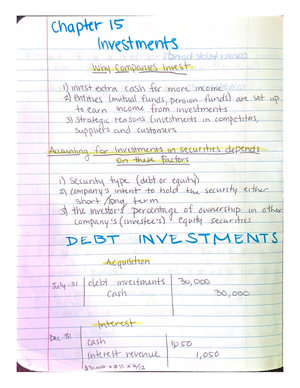 Chapter 15
Investments
Why Companies Invest
1) invest extra cash for more income
2) entities (mutual funds, pension funds) are set up
to earn income from investments
3) Strategic reasons (investments in competitors,
suppliers and customers
Accounting for Investments in securities depends
on these Factors
1) Security type (debt or equity)
2) company's intent to hold the security either
short/long term
3) the investor's percentage of ownership in other
company's (investee's) equity securities
DEBT INVESTMENTS
Acquisition
July 31 debt investments 30,000
Cash 30,000
Interest
Dec 31 Cash
interest revenue 1,050